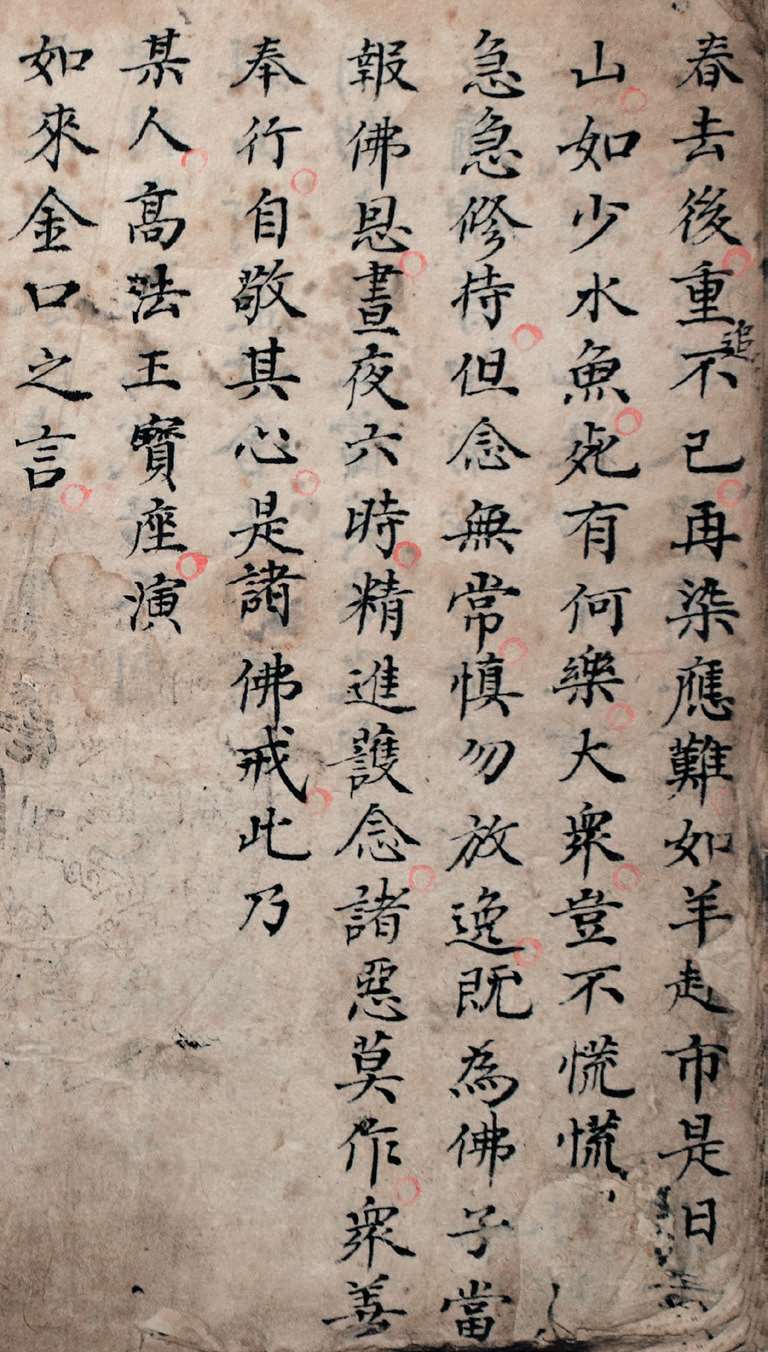 春去後重不已再染應難如羊赱市是日
追
山如少水魚死有何樂大衆豈不慌慌
急急修持但念無常慎勿放逸既為佛子當
報佛恩晝夜六時精進護念諸惡莫作衆善
奉行自敬其心是諸佛戒此乃
某人高法王寳座演
如來金口之言